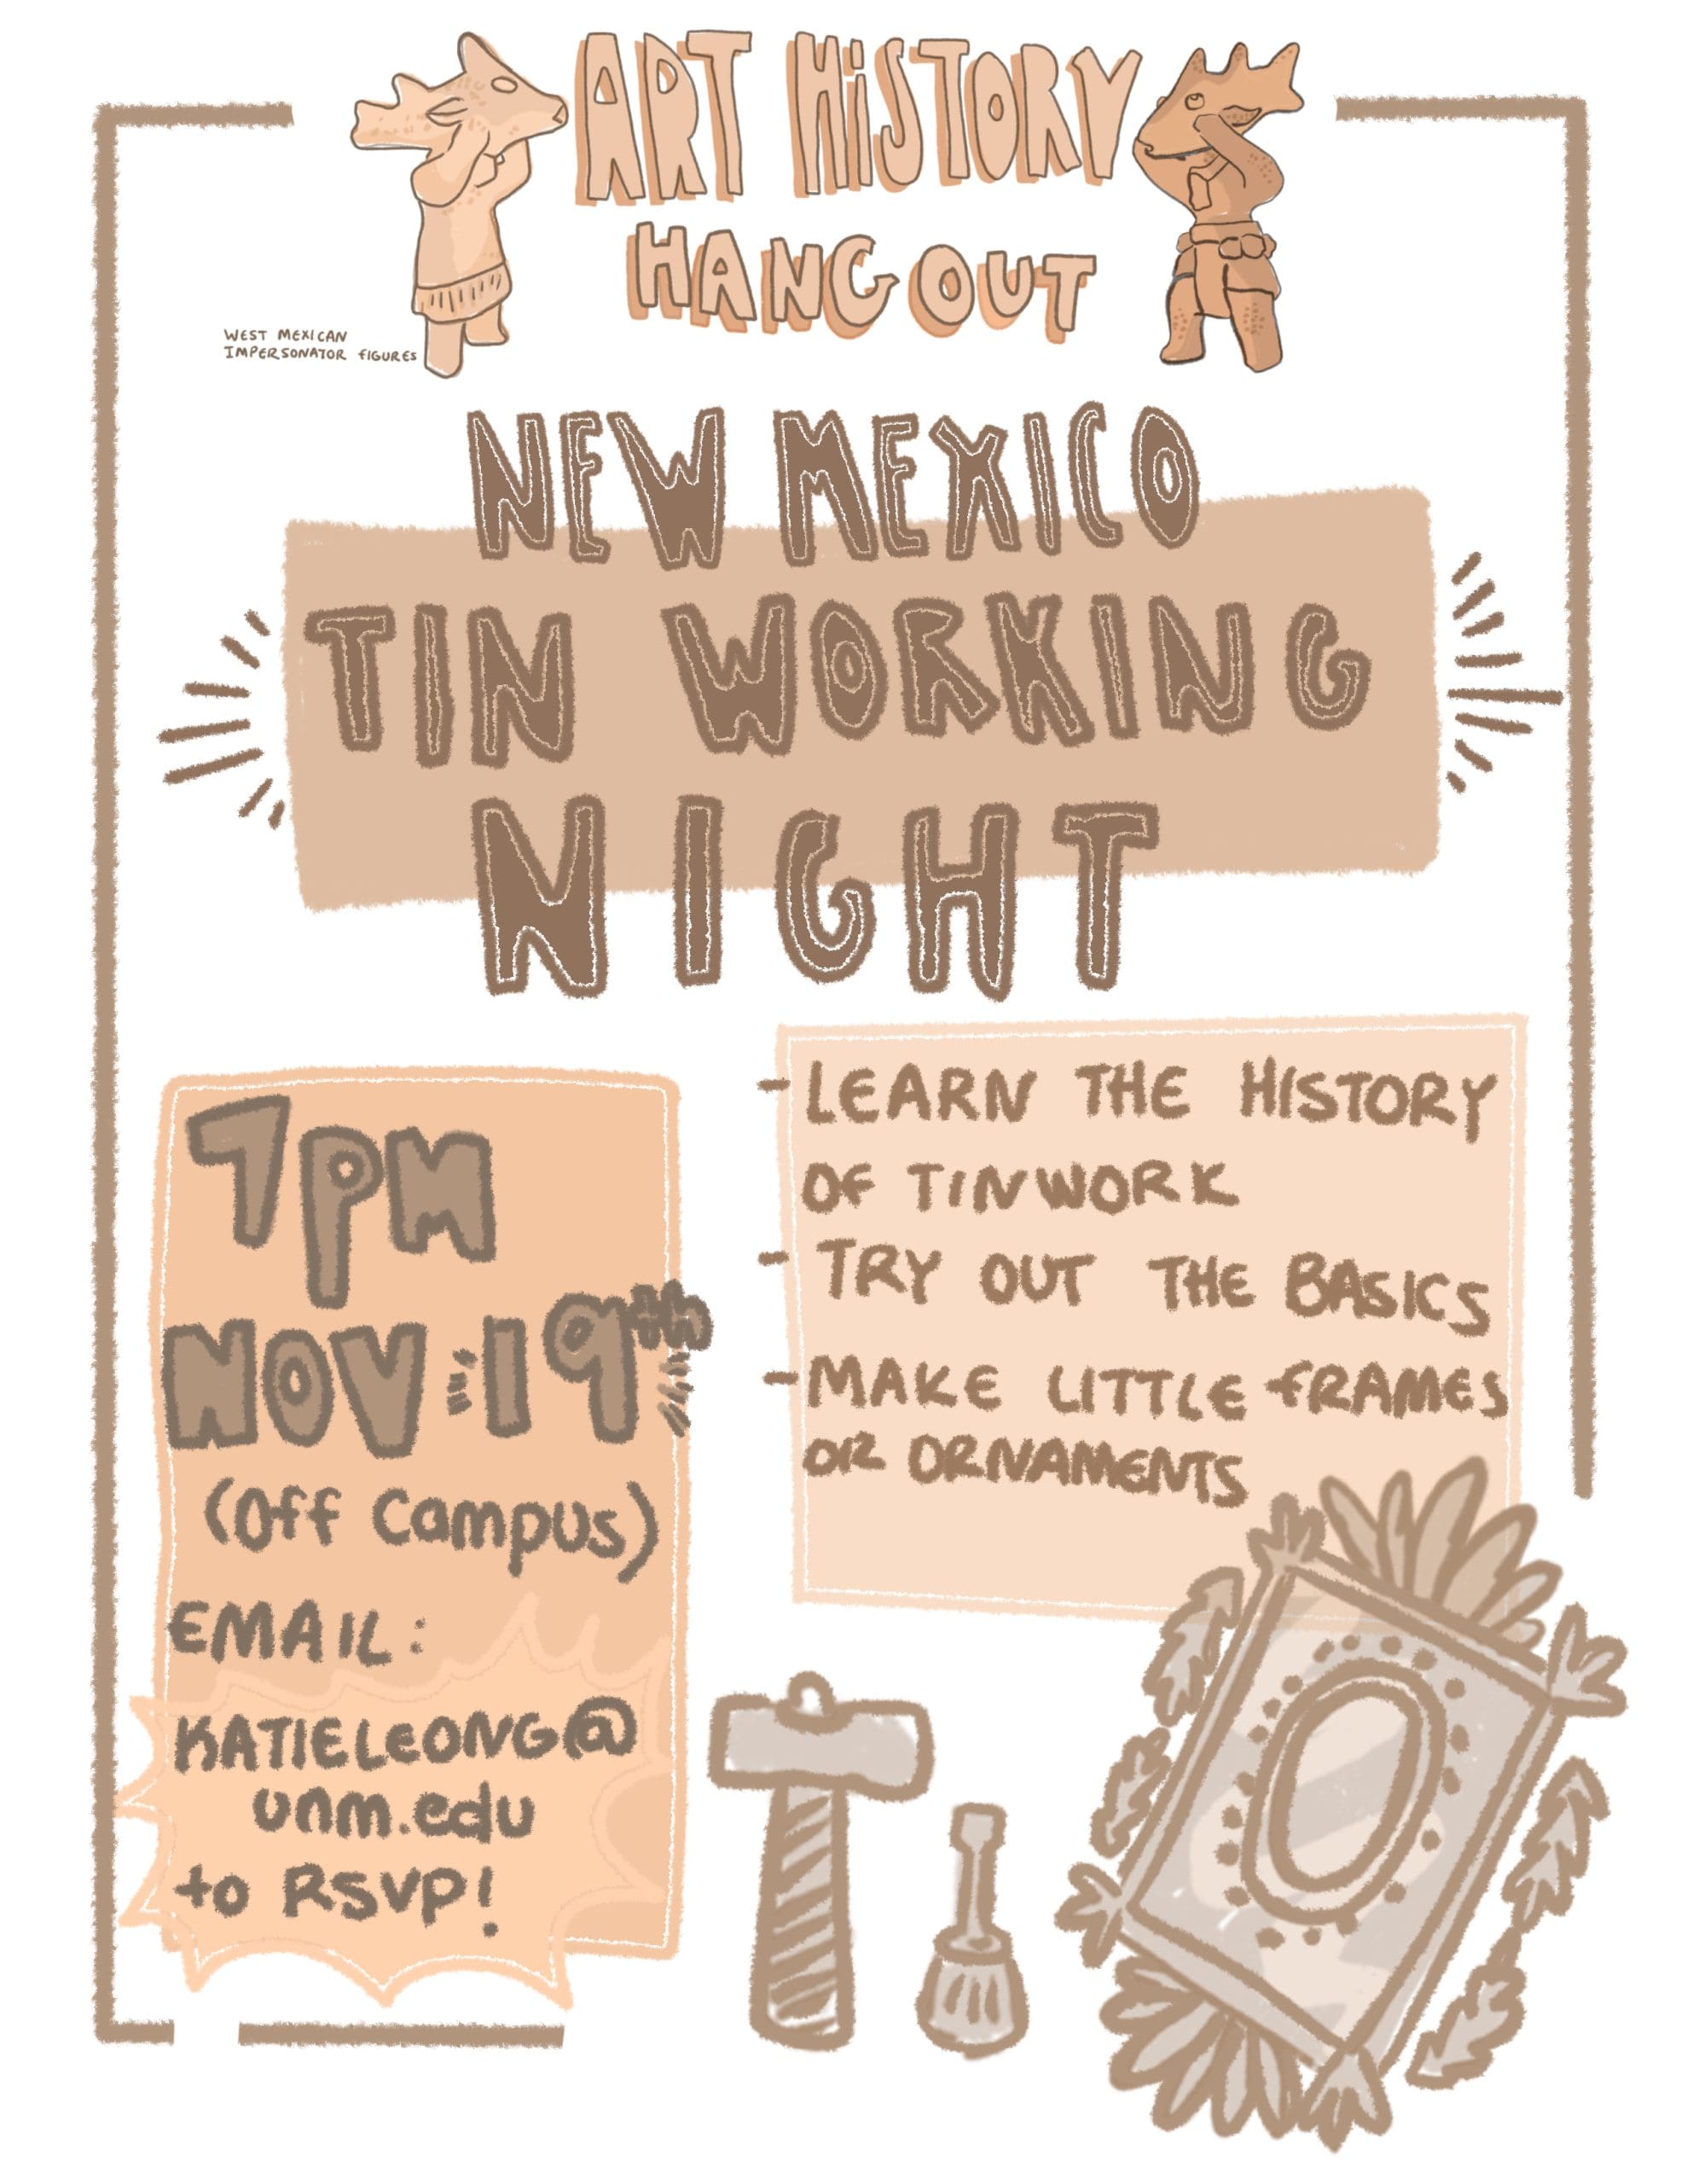 ART HiSTORY
HANG OUT
WEST MEXICAN
IMPERSONATOR fIGURES
NEW MEXICO
TIN WORKING
NIGHT
7pm
NOV. 19th
(Off Campus)
EMAIL:
KATIELEONG@
unm.edu
to RSVP!
- LEARN THE HISTORY
OF TINWORK
- TRY OUT THE BASICS
- MAKE LITTLE fRAMES
OR ORNAMENTS